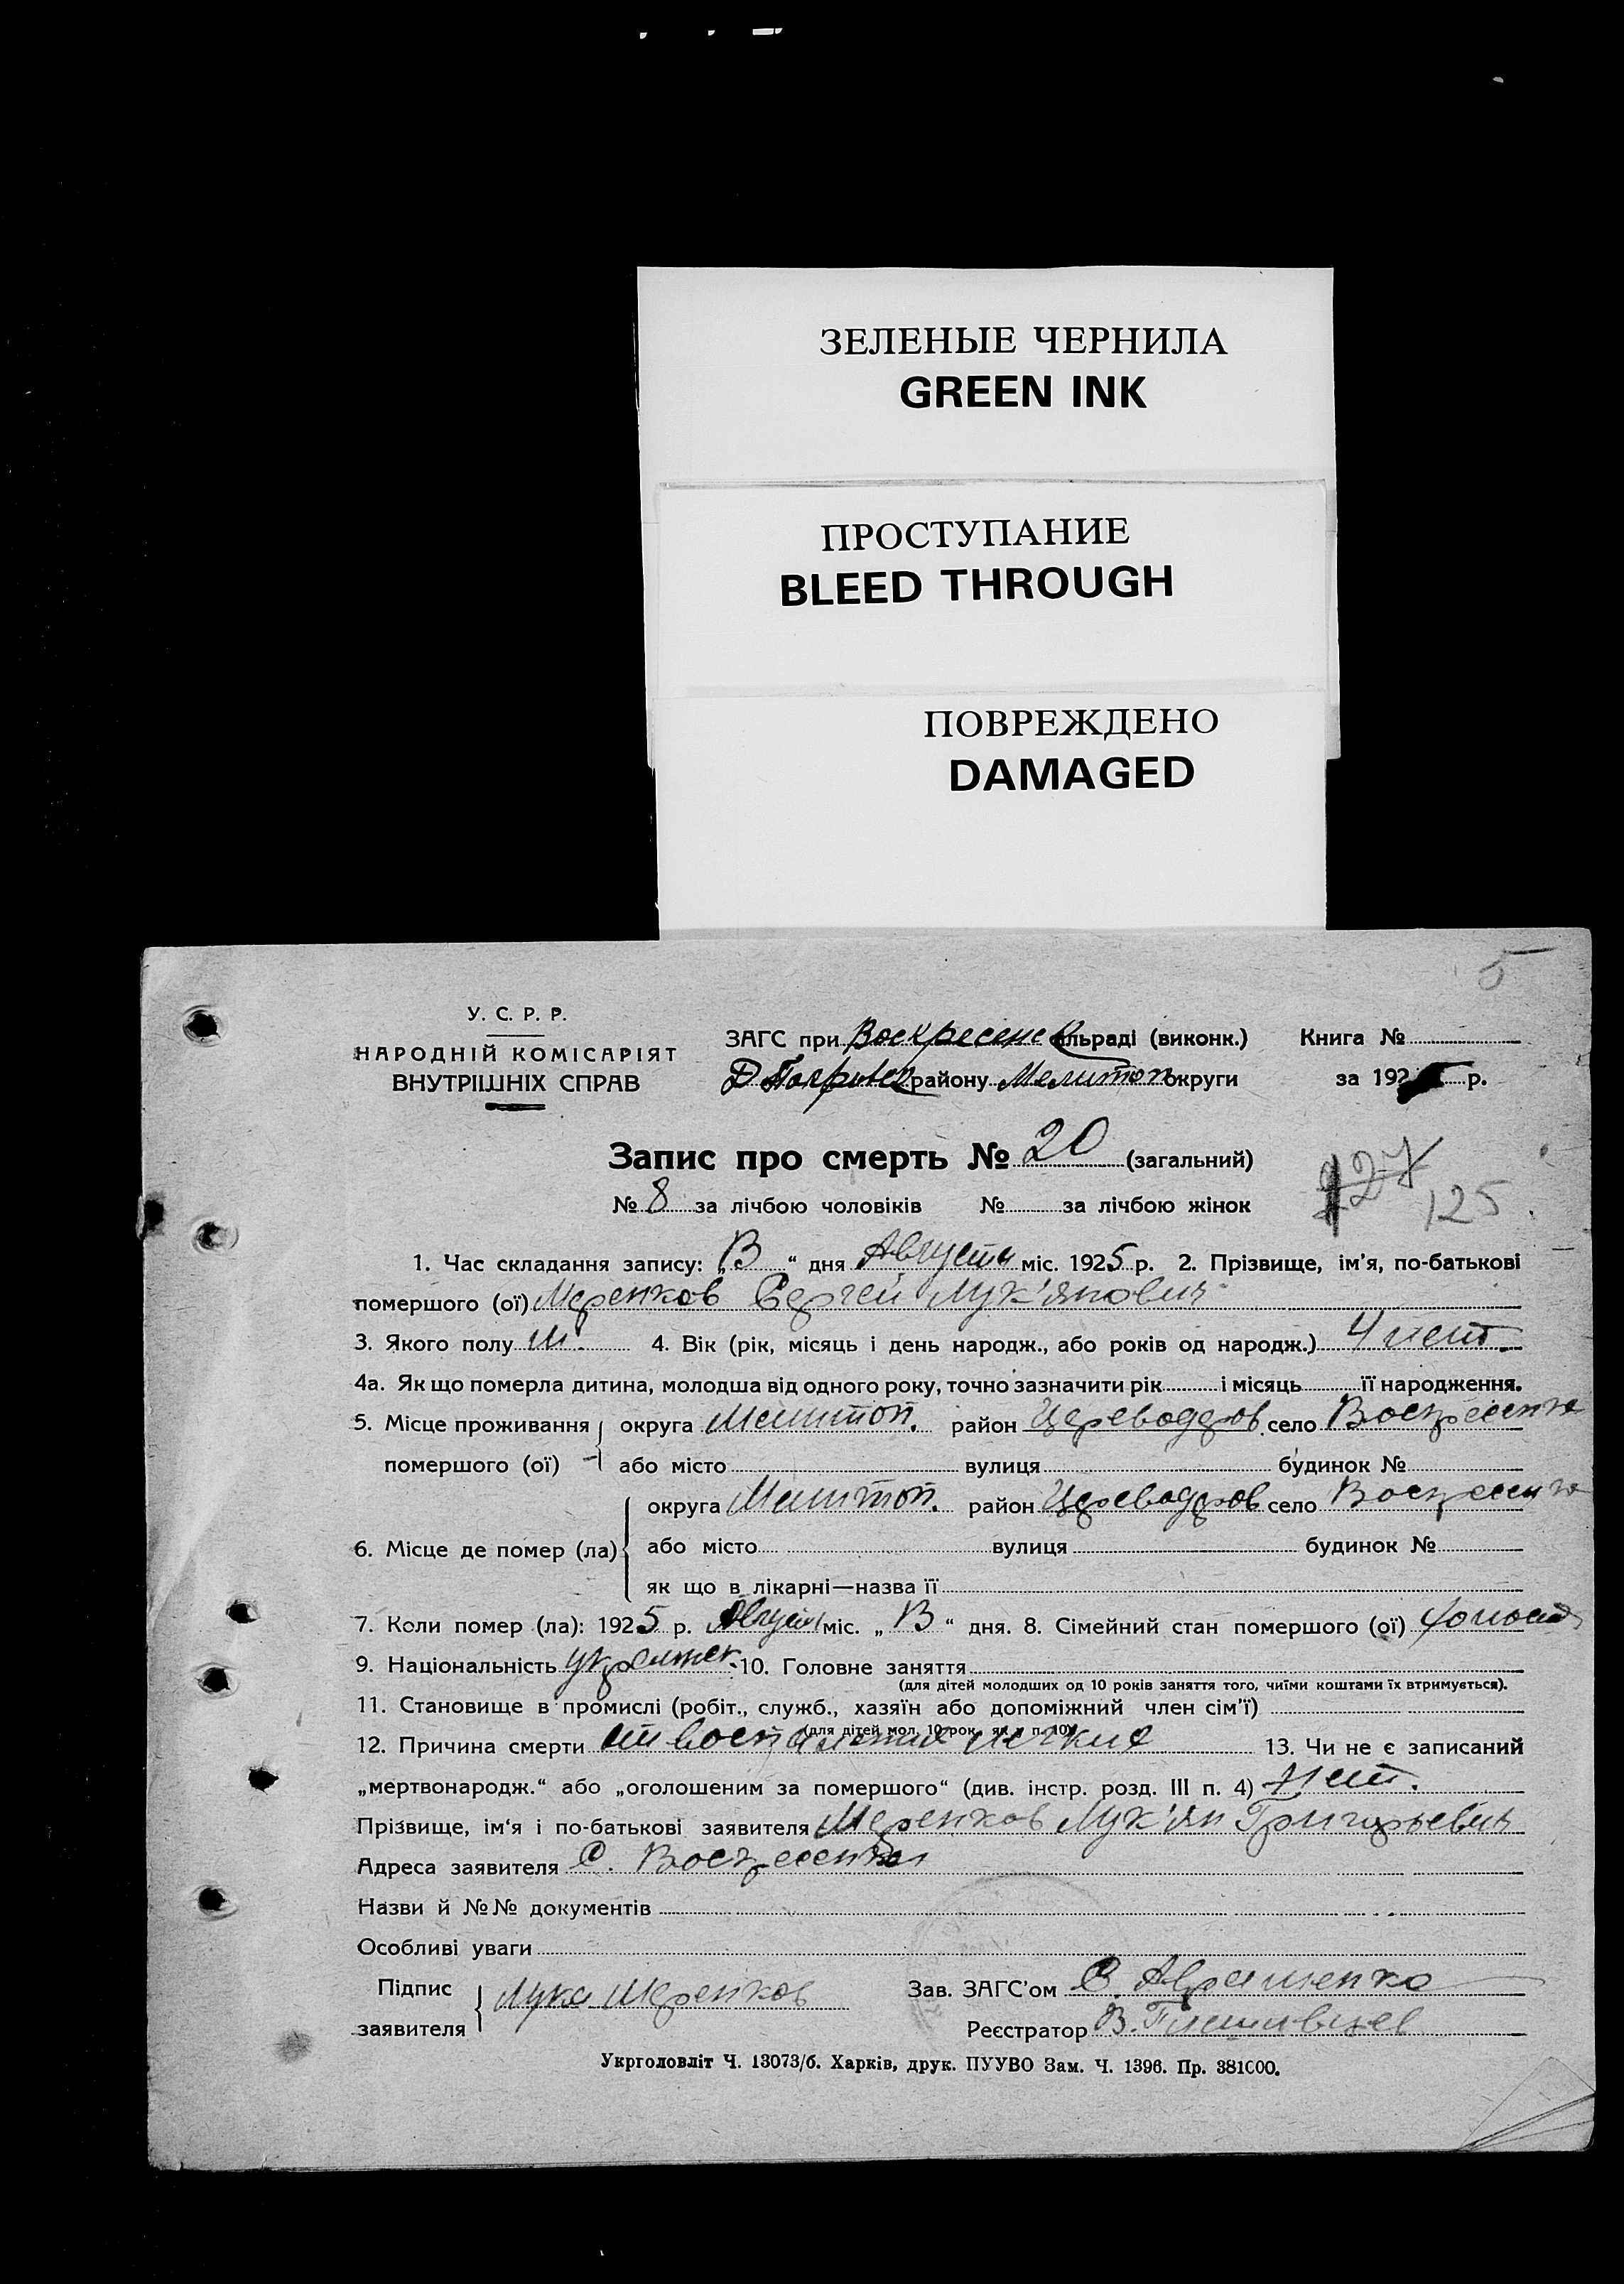 ЗЕЛЕНЫЕ ЧЕРНИЛА
GREEN INK
ПРОСТУПАНИЕ
BLEED THROUGH
ПОВРЕЖДЕНО
DAMAGED
5
У. С. Р. Р.
НАРОДНІЙ КОМІСАРІЯТ
ВНУТРІШНІХ СПРАВ
ЗАГС при Воскресенс льраді (виконк.) Книга №
району Мелитоп округи за 192 р.
Запис про смерть № 20 (загальний)
№ 8 за лічбою чоловіків № за лічбою жінок
127
125
1. Час складання запису: „13“ дня Августа міс. 1925 р. 2. Прізвище, ім’я, по-батькові
помершого (ої) Меренков Сергей Лук'янович
3. Якого полу м. 4. Вік (рік, місяць і день народж., або років од народж.) 4
4а. Як що померла дитина, молодша від одного року, точно зазначити рік і місяць її народження.
5. Місце проживання округа Мелитоп. район село Воскресенка
помершого (ої) або місто вулиця будинок №
округа Мелитоп. район село Воскресенка
6. Місце де помер (ла) або місто вулиця будинок №
як що в лікарні—назва її
7. Коли помер (ла): 1925 р. Август міс. „13“ дня. 8. Сімейний стан помершого (ої)
9. Національність 10. Головне заняття
(для дітей молодших од 10 років заняття того, чиїми коштами їх втримується).
11. Становище в промислі (робіт., служб., хазяїн або допоміжний член сім’ї)
(для дітей мол. 10 рок. як у п. 10)
12. Причина смерти 13. Чи не є записаний
„мертвонародж.“ або „оголошеним за помершого“ (див. інстр. розд. III п. 4) Нет.
Прізвище, ім‘я і по-батькові заявителя Меренков Лук'ян Григорьевич
Адреса заявителя С. Воскресенка
Назви й №№ документів
Особливі уваги
Підпис Лука Меренков Зав. ЗАГС’ом Авраменко
заявителя Реєстратор В.
Укрголовліт Ч. 13073/б. Харків, друк. ПУУВО Зам. Ч. 1396. Пр. 381000.